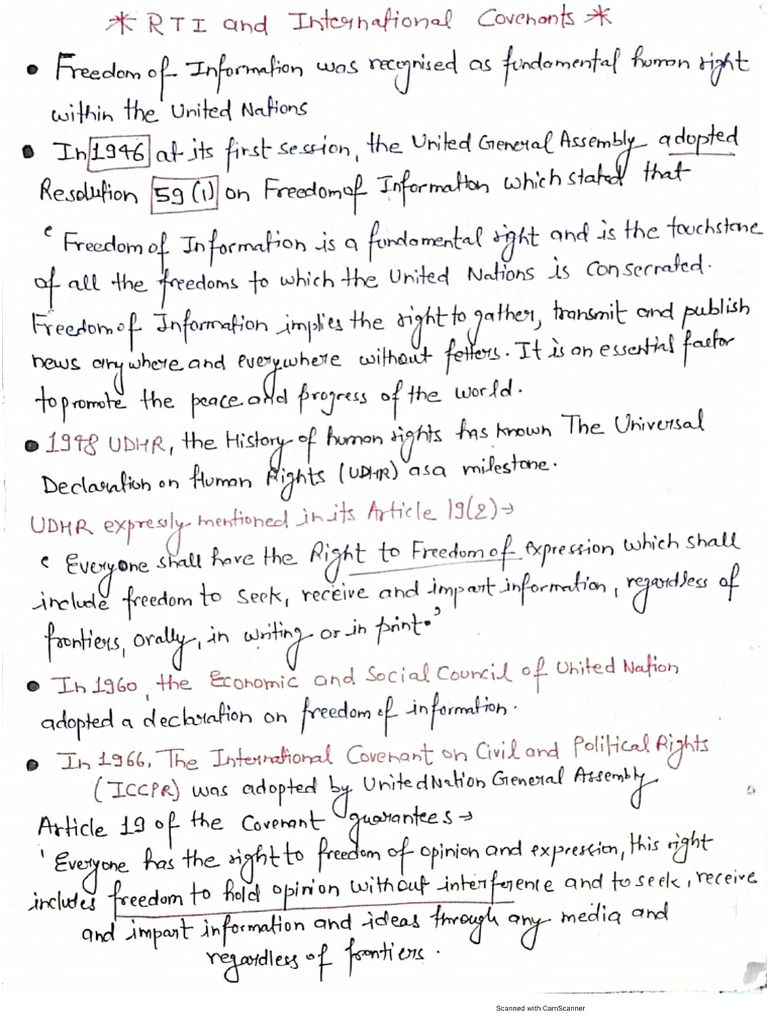 * RTI and International Covenants *
• Freedom of Information was recognised as fundamental human right
within the United Nations
• In 1946 at its first session, the United General Assembly adopted
Resolution 59(1) on Freedom of Information which stated that
' Freedom of Information is a fundamental right and is the touchstone
of all the freedoms to which the United Nations is consecrated.
Freedom of Information implies the right to gather, transmit and publish
news anywhere and everywhere without fetters. It is an essential factor
to promote the peace and progress of the world.
• 1948 UDHR, the History of human rights has known The Universal
Declaration on Human Rights (UDHR) as a milestone.
UDHR expressly mentioned in its Article 19(2)→
' Everyone shall have the Right to Freedom of expression which shall
include freedom to seek, receive and impart information, regardless of
frontiers, orally, in writing or in print.'
• In 1960, the Economic and Social Council of United Nation
adopted a declaration on freedom of information.
• In 1966, The International Covenant on Civil and Political Rights
(ICCPR) was adopted by United Nation General Assembly
Article 19 of the Covenant guarantees →
' Everyone has the right to freedom of opinion and expression, this right
includes freedom to hold opinion without interference and to seek, receive
and impart information and ideas through any media and
regardless of frontiers.
Scanned with CamScanner